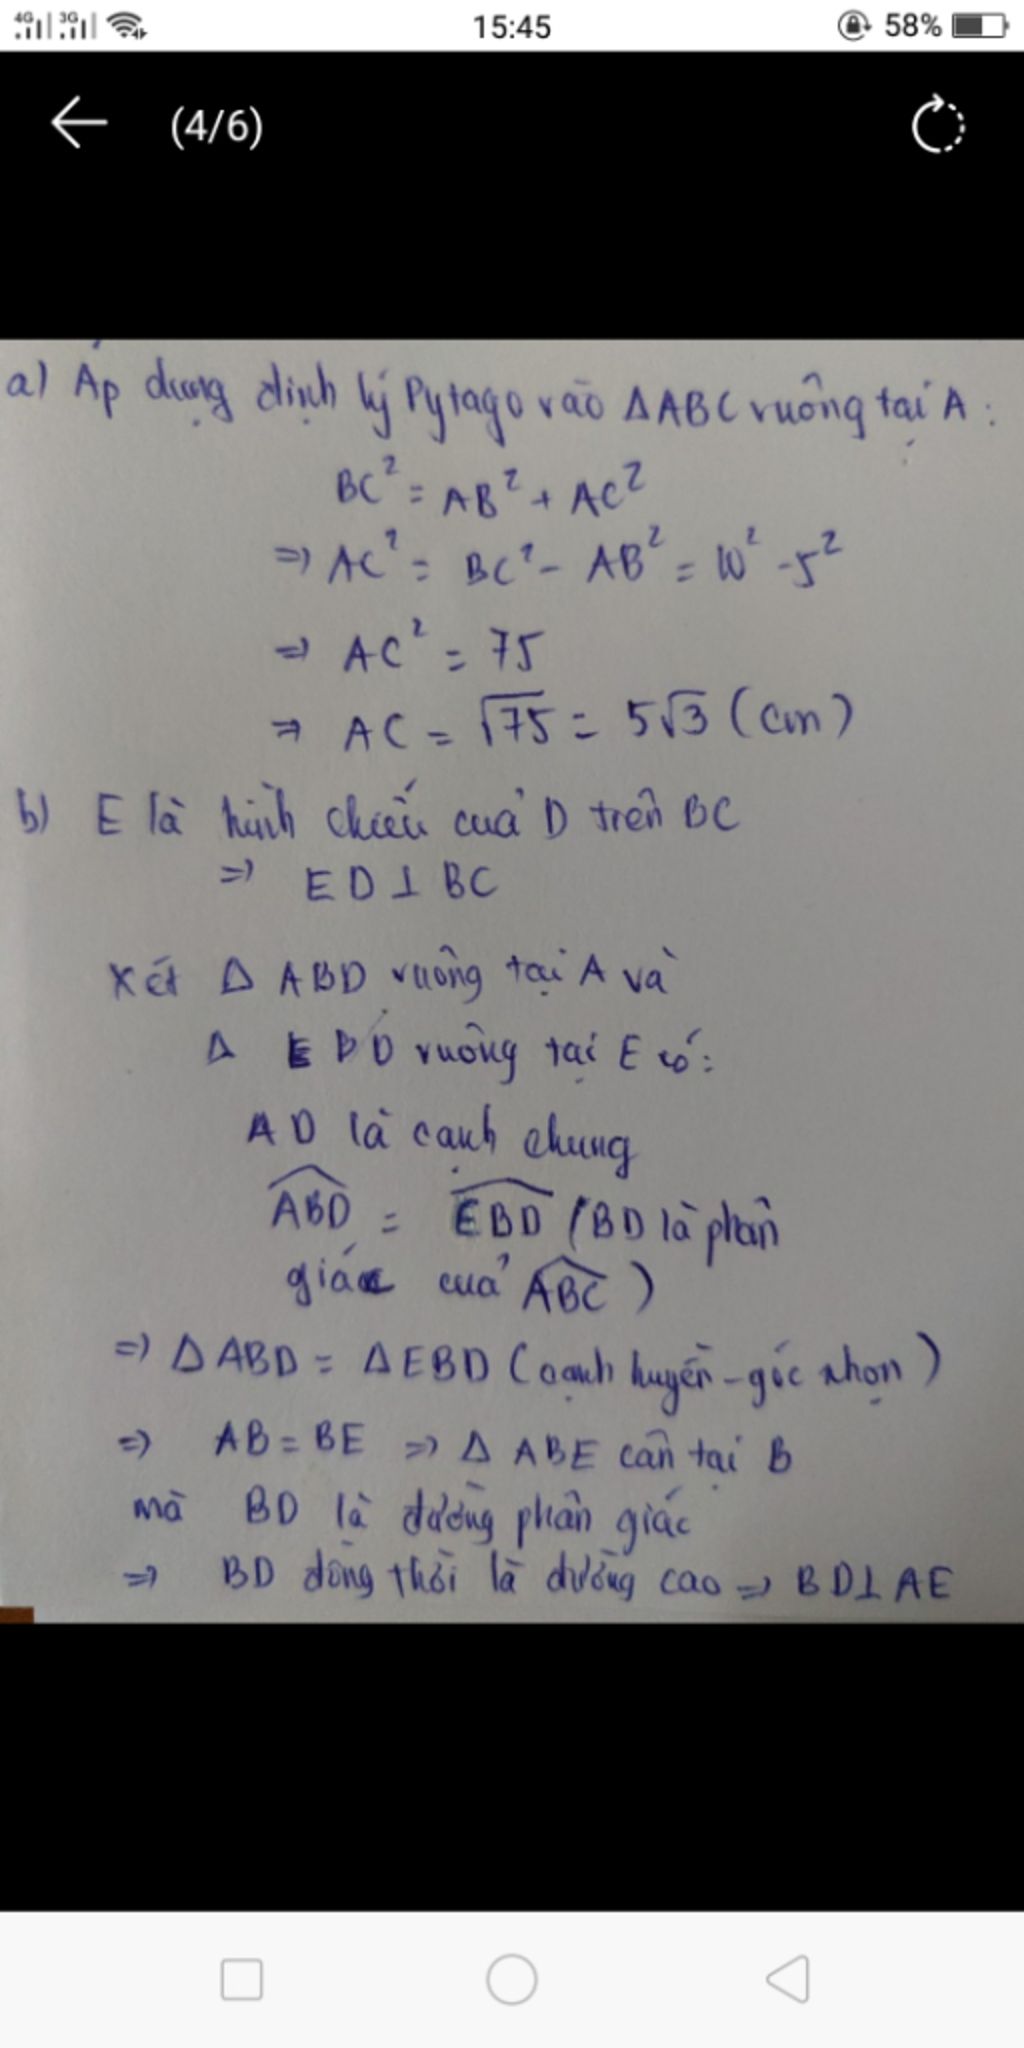 4G 3G 15:45 58%
(4/6)
a) Áp dụng định lý Pytago vào ΔABC vuông tại A:
BC² = AB² + AC²
=> AC² = BC² - AB² = 10² - 5²
=> AC² = 75
=> AC = √75 = 5√3 (cm)
b) E là hình chiếu của D trên BC
=> ED⊥BC
Xét Δ ABD vuông tại A và
Δ EBD vuông tại E có:
AD là cạnh chung
ABD = EBD (BD là phân
giác của ABC)
=> ΔABD = ΔEBD (cạnh huyền-góc nhọn)
=> AB = BE => Δ ABE cân tại B
mà BD là đường phân giác
=> BD đồng thời là đường cao => BD⊥AE